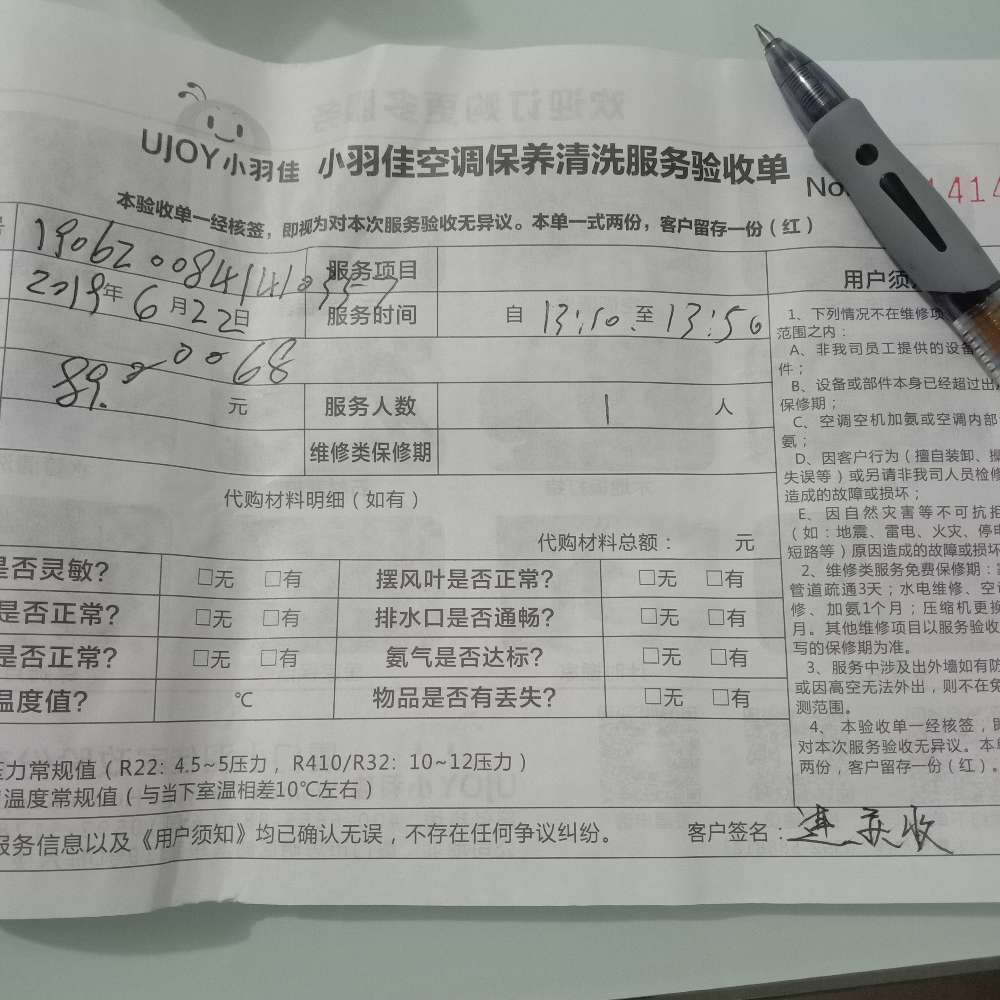 UJOY小羽佳 小羽佳空调保养清洗服务验收单
No. 1414
本验收单一经核签，即视为对本次服务验收无异议。本单一式两份，客户留存一份（红）
服务项目
2019年6月22日 服务时间 自 13:10 至 13:50
0068
89. 元 服务人数 1 人
维修类保修期
代购材料明细（如有）
代购材料总额： 元
是否灵敏? □无 □有 摆风叶是否正常? □无 □有
是否正常? □无 □有 排水口是否通畅? □无 □有
是否正常? □无 □有 氨气是否达标? □无 □有
温度值? ℃ 物品是否有丢失? □无 □有
压力常规值（R22：4.5~5压力，R410/R32：10~12压力）
温度常规值（与当下室温相差10℃左右）
服务信息以及《用户须知》均已确认无误，不存在任何争议纠纷。 客户签名：
用户须
1、下列情况不在维修项
范围之内：
A、非我司员工提供的设备
件；
B、设备或部件本身已经超过出
保修期；
C、空调空机加氨或空调内部
氨；
D、因客户行为（擅自装卸、
失误等）或另请非我司人员检修
造成的故障或损坏；
E、因自然灾害等不可抗
（如：地震、雷电、火灾、停电
短路等）原因造成的故障或损坏
2、维修类服务免费保修期：
管道疏通3天；水电维修、空
修、加氨1个月；压缩机更换
月。其他维修项目以服务验收
写的保修期为准。
3、服务中涉及出外墙如有防
或因高空无法外出，则不在免
测范围。
4、本验收单一经核签，即
对本次服务验收无异议。本单
两份，客户留存一份（红）。